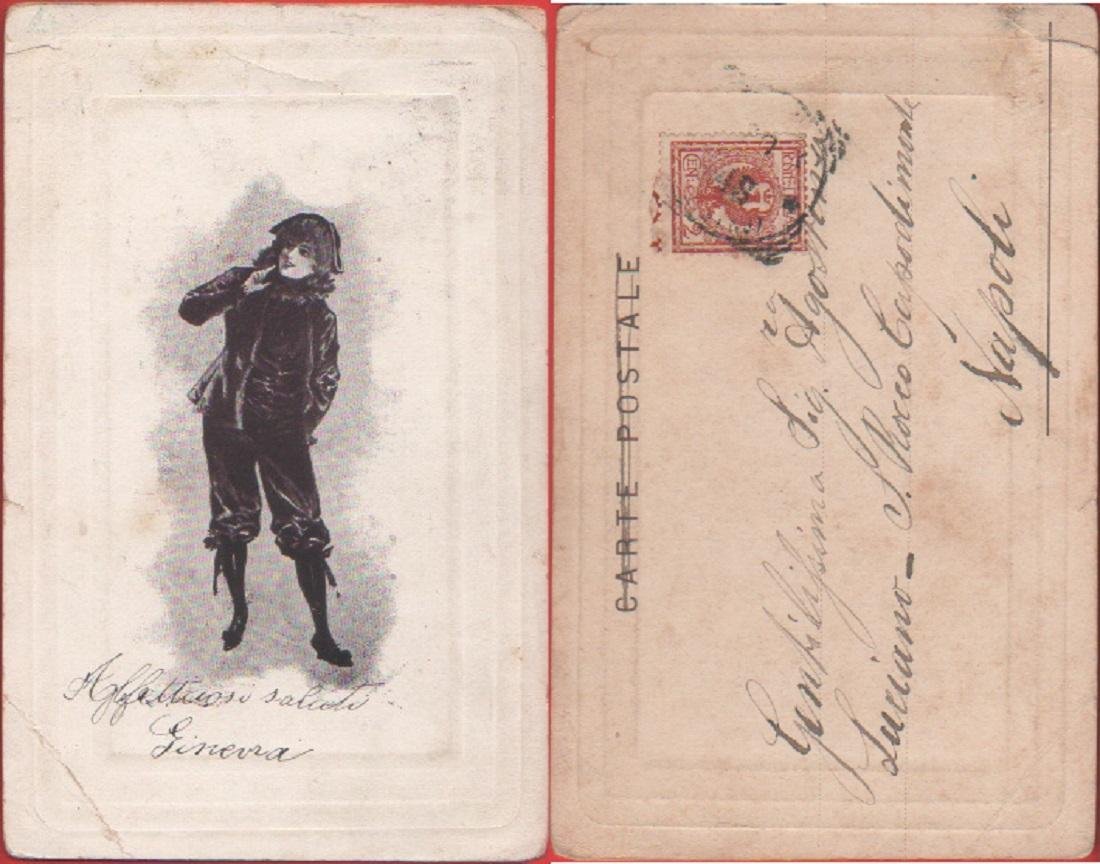 Affettuosi saluti
Ginevra
CARTE POSTALE
Gentilissima Sig.ra Agostina
Luciano - S. Rocco Capodimonte
Napoli